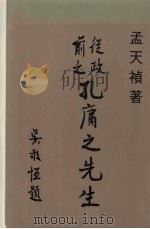 孟天禎著
從政
前之
孔庸之先生
吳敬恆題